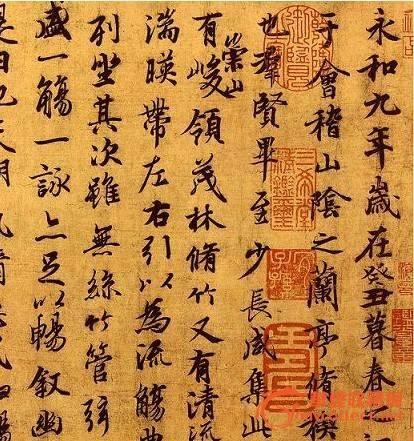 永和九年歲在癸丑暮春之初
于會稽山陰之蘭亭脩稧
也羣賢畢至少長咸集此
有崇山峻領茂林脩竹又有清流
湍暎帶左右引以為流觴曲
列坐其次雖無絲竹管弦
盛一觴一詠亦足以暢敘幽
是日也天朗氣清